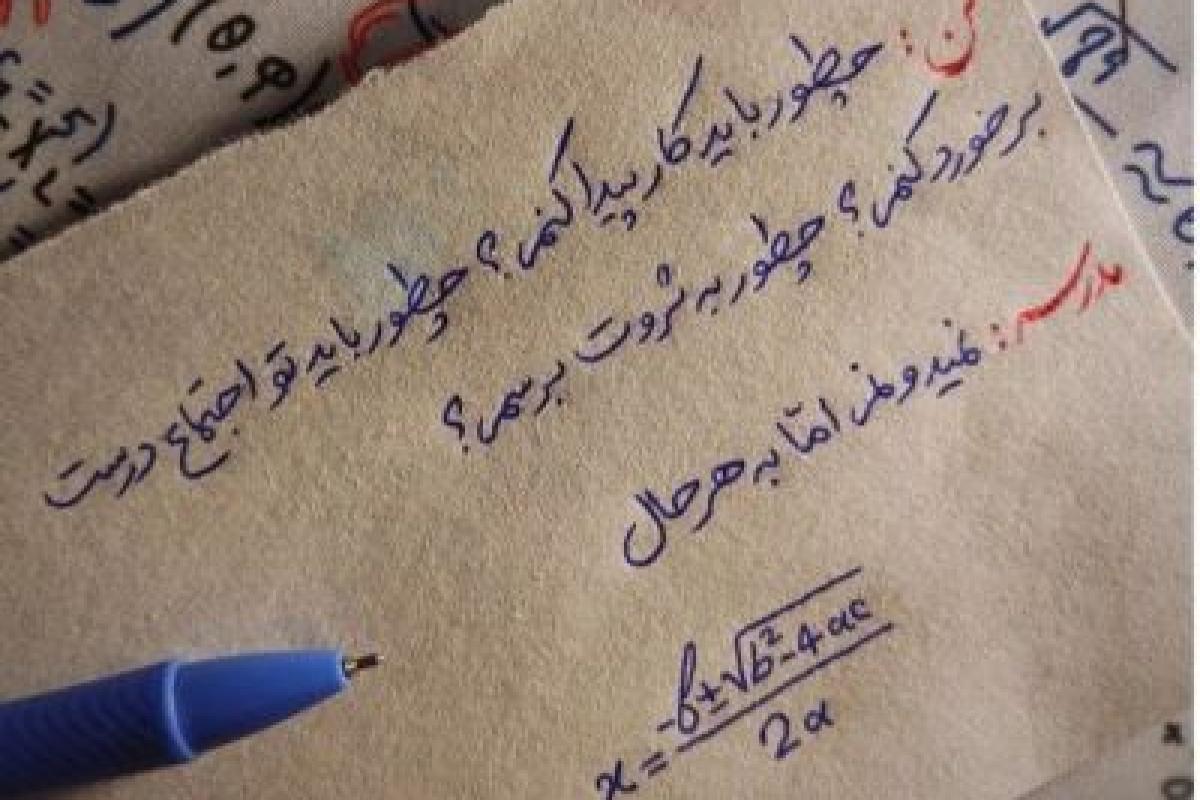 من: چطور باید کار پیدا کنم؟ چطور باید تو اجتماع درست
برخورد کنم؟ چطور به ثروت برسم؟
مدرسه: نمیدونم اما به هر حال
x = \frac{-b ± \sqrt{b² - 4ac}}{2a}